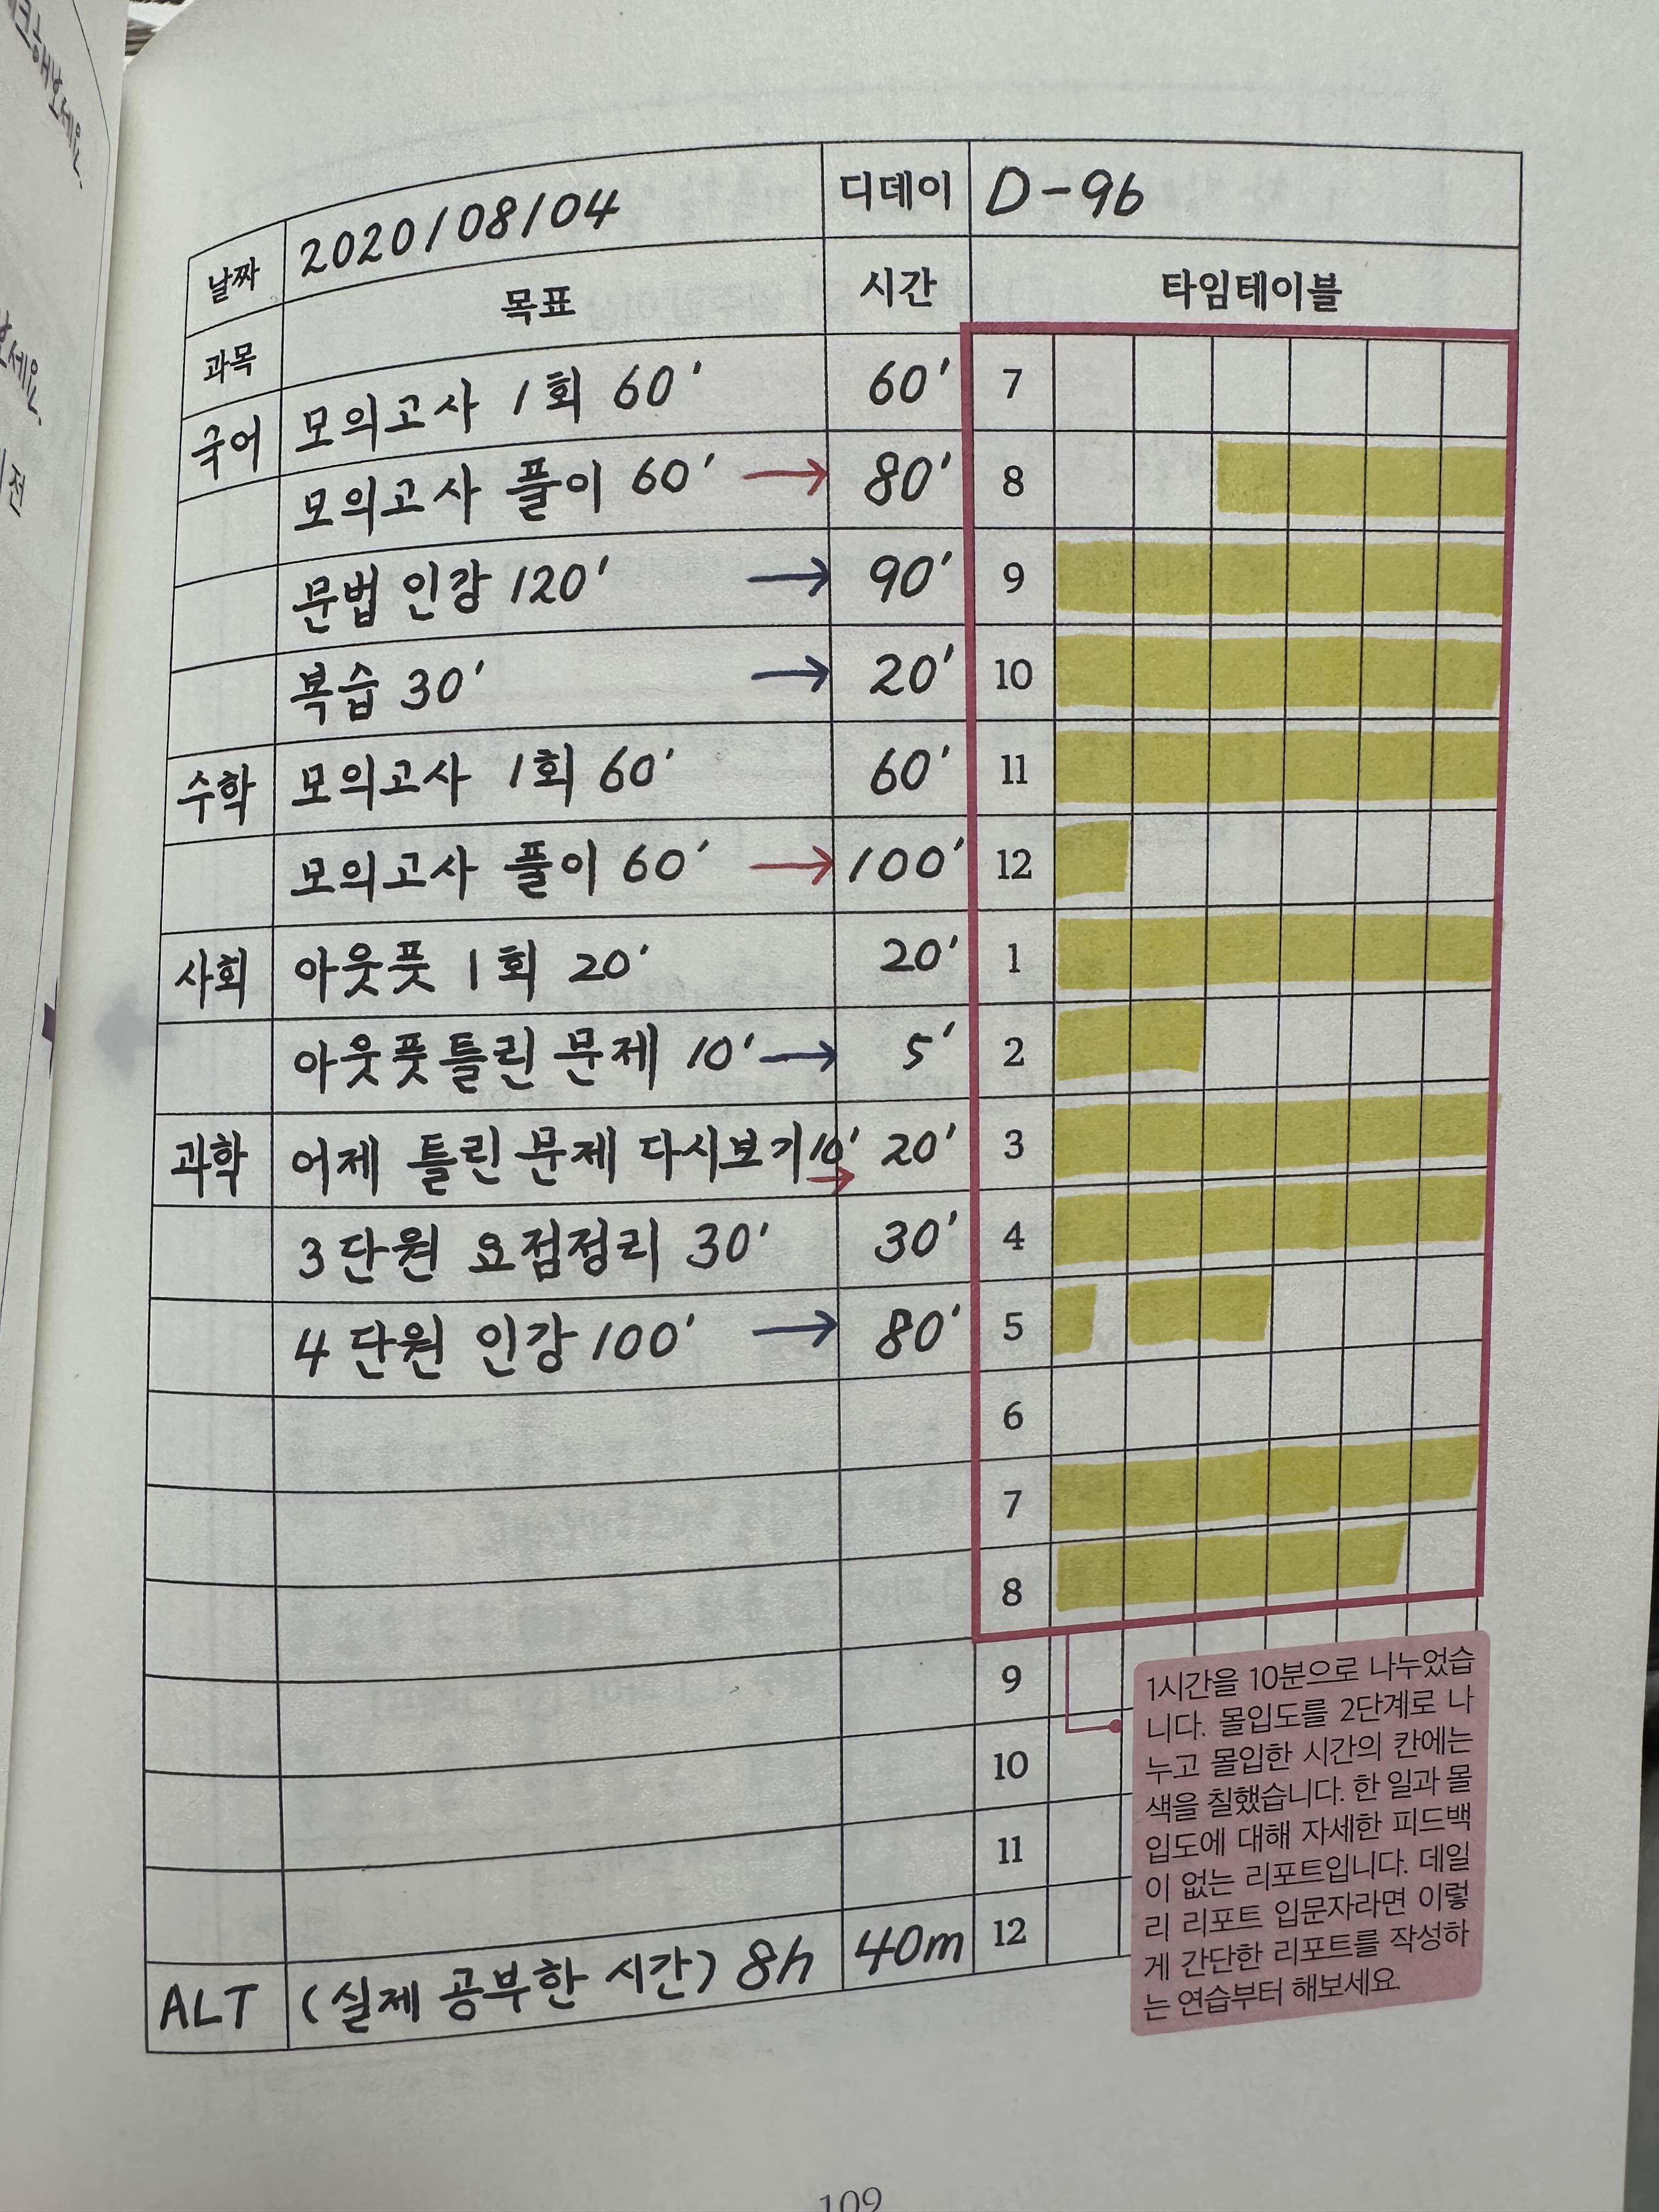 날짜 2020/08/04 디데이 D-96
과목 목표 시간 타임테이블
국어 모의고사 1회 60' 60' 7
모의고사 풀이 60' → 80' 8
문법 인강 120' → 90' 9
복습 30' → 20' 10
수학 모의고사 1회 60' 60' 11
모의고사 풀이 60' → 100' 12
사회 아웃풋 1회 20' 20' 1
아웃풋 틀린 문제 10' → 5' 2
과학 어제 틀린 문제 다시보기 10' → 20' 3
3단원 요점정리 30' 30' 4
4단원 인강 100' → 80' 5
6
7
8
9
10
11
12
ALT (실제 공부한 시간) 8h 40m
1시간을 10분으로 나누었습
니다. 몰입도를 2단계로 나
누고 몰입한 시간의 칸에는
색을 칠했습니다. 한 일과 몰
입도에 대해 자세한 피드백
이 없는 리포트입니다. 데일
리 리포트 입문자라면 이렇
게 간단한 리포트를 작성하
는 연습부터 해보세요.
109